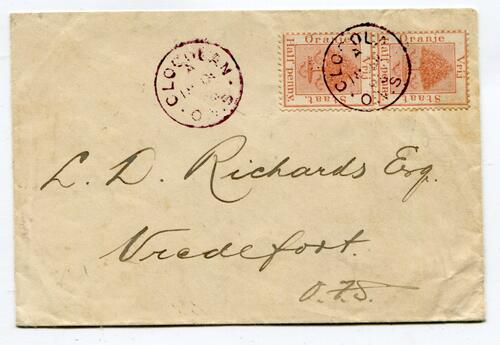 CLOCOLAN
O.V.S.
Oranje
Vrij
Staat.
Half penny.
Oranje
Vrij
Staat.
Half penny.
CLOCOLAN
O.V.S.
L. D. Richards Esq.
Vredefort.
O.F.S.